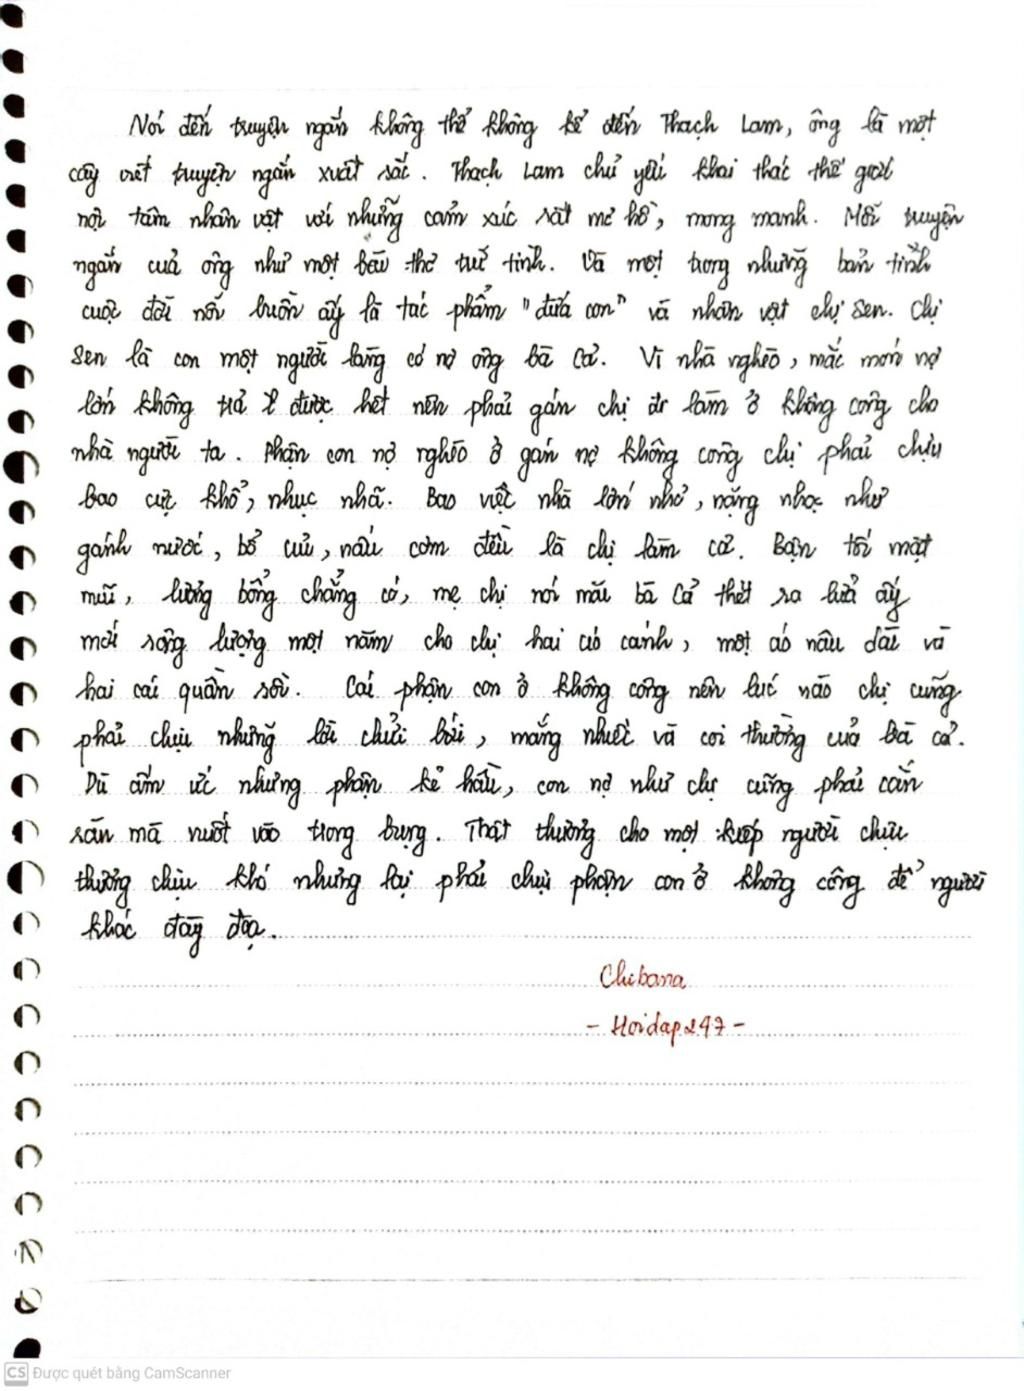 Nói đến truyện ngắn không thể không kể đến Thạch Lam, ông là một
cây viết truyện ngắn xuất sắc. Thạch Lam chủ yếu khai thác thế giới
nội tâm nhân vật với những cảm xúc rất mơ hồ, mong manh. Mỗi truyện
ngắn của ông như một bài thơ trữ tình. Và một trong những bản tình
cuộc đời nỗi buồn ấy là tác phẩm "đứa con" và nhân vật chị Sen. Chị
Sen là con một người làng có nợ ông bà Cả. Vì nhà nghèo, mắc món nợ
lớn không trả được hết nên phải gán chị đi làm ở không công cho
nhà người ta. Phận con nợ nghèo ở gán nợ không công chị phải chịu
bao cực khổ, nhục nhã. Bao việc nhà lớn nhỏ, nặng nhọc như
gánh nước, bổ củi, nấu cơm đều là chị làm cả. Bận tối mặt
mũi, lương bổng chẳng có, mẹ chị nói mãi bà Cả thét ra lửa ấy
mới sòng lượng một năm cho chị hai áo cánh, một áo nâu dài và
hai cái quần sồi. Cái phận con ở không công nên lúc nào chị cũng
phải chịu những lời chửi bới, mắng nhiếc và coi thường của bà cả.
Dù ấm ức nhưng phận kẻ hầu, con nợ như chị cũng phải cắn
răn mà nuốt vào trong bụng. Thật thương cho một kiếp người chịu
thương chịu khó nhưng lại phải chịu phận con ở không công để người
khác đày đọa.
Chibana
- Hoidap247 -
CS Được quét bằng CamScanner